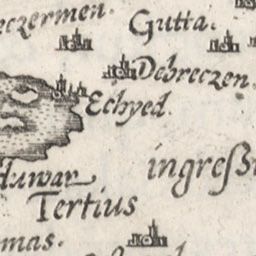 eczermen.
Gutta.
Debreczen.
Echyed.
ingreßi
duwar
Tertius
mas.